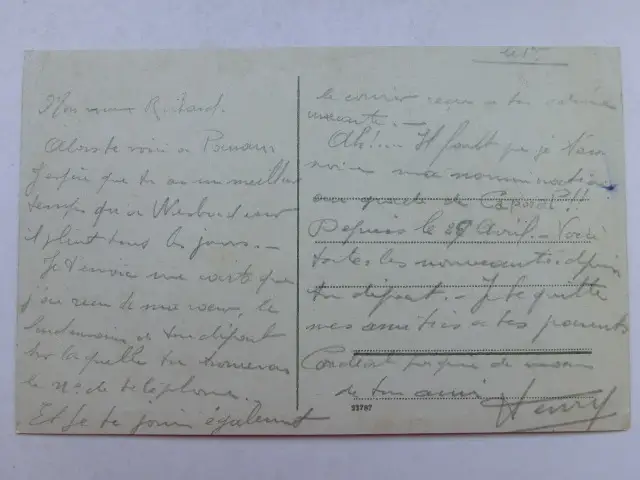 Mon vieux
Alors te voici à
J'espère que tu as un meilleur
temps qu'à
il pleut tous les jours. -
Je t'envoie une carte que
j'ai reçu de ma soeur, le
lendemain de ton départ
sur laquelle tu trouveras
le n° de téléphone.
Et je te joins également
le 1er
le courrier reçu à ton
-
Ah!... Il faut que je t'
ma nomination
au grade de Caporal!!
Depuis le 29 Avril. - Voici
toutes les nouveautés depuis
ton départ. - Je te quitte
mes amitiés à tes parents
Cordiale poignée de mains
de ton ami Henry
53787